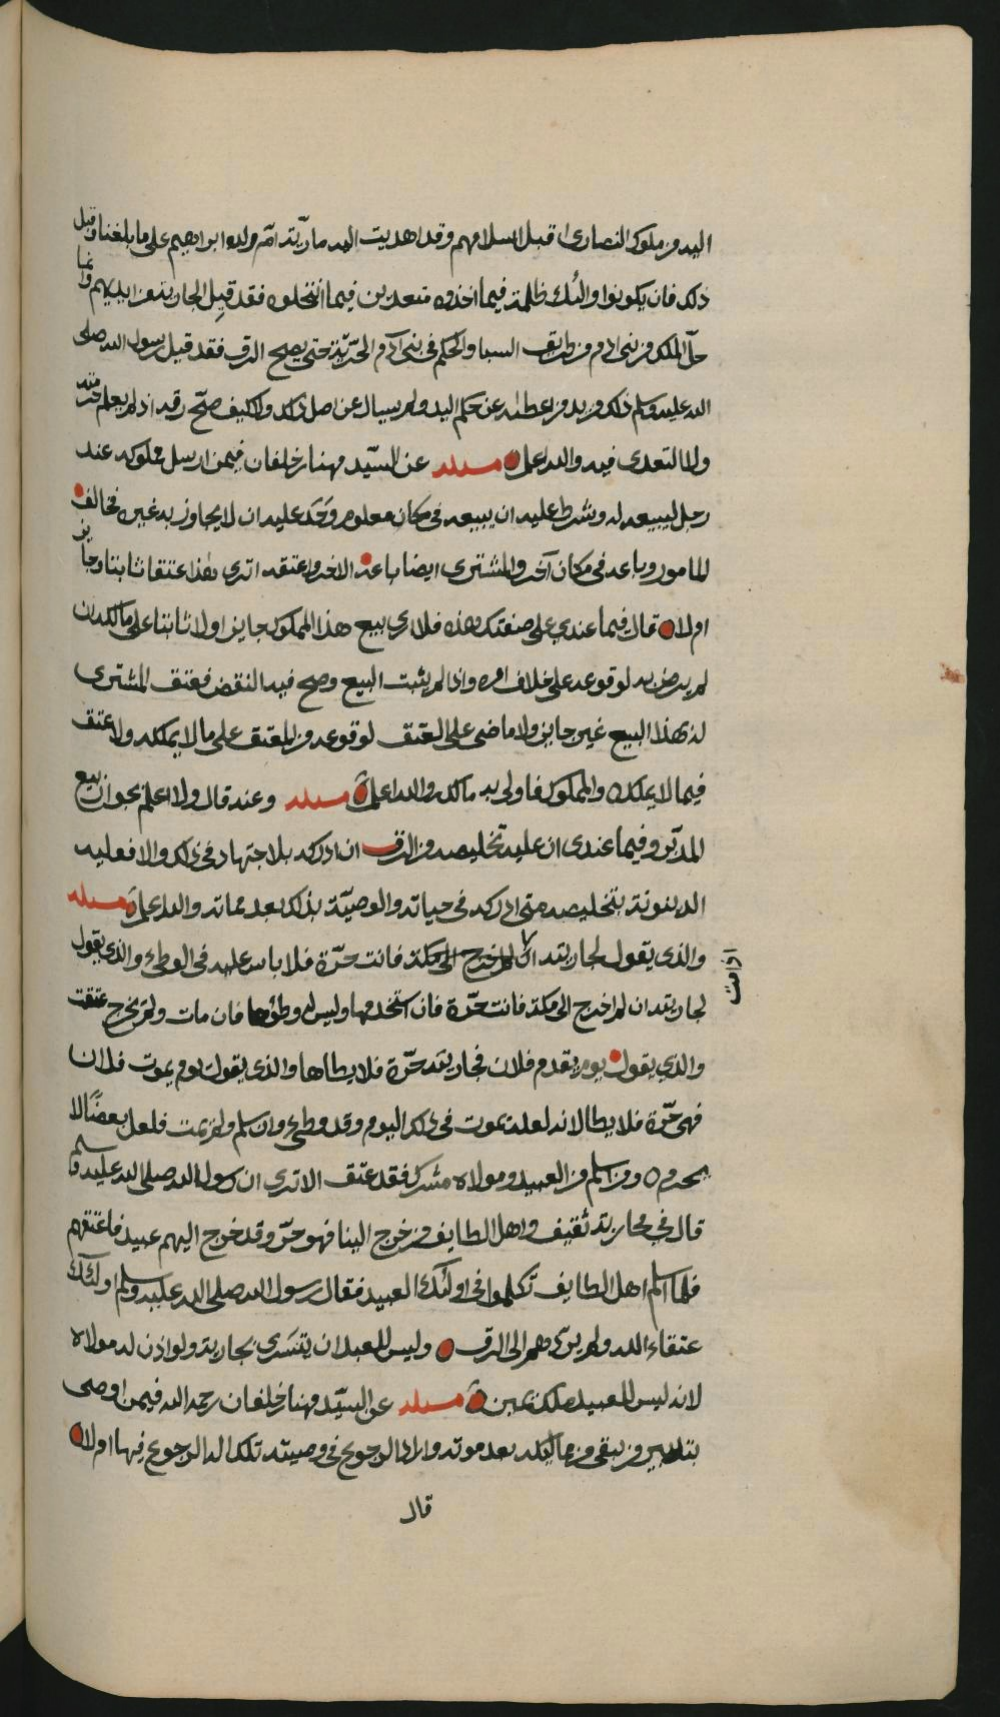 اليه من ملوك النصارى قبل اسلامهم وقد اهديت اليه مارية امّ ولده ابراهيم على ما بلغنا وقبل
ذلك فان يكونوا اولئك ظلمة فيما اخذوه متعدين فيما انتحلوه فقد قبل الجارية من ايديهم وانما
حلّ الملك من بنى ادم من طريق السبا والحكم فى بنى آدم الحرّيّة حتى يصح الرق فقد قبل رسول الله صلى
الله عليه وسلم ذلك من يد من اعطاه عن حكم اليد ولم يسال عن اصل ذلك ولا كيف صحّ رقه اذ لم يعلم حريته
ولا التعدى فيه والله اعلم مسئلة عن السّيد مهنا بن خلفان فيمن ارسل مملوكه عند
رجل ليبيعه له وشرط عليه ان يبيعه فى مكان معلوم وحَدَّ عليه ان لا يجاوز به غيره فخالف
المامور وباعه فى مكان آخر والمشترى ايضا باعه الاخر واعتقه اترى هذا عتقا ثابتا وجايز
ام لا قال فيما عندي على صفتك هذه فلا ارى بيع هذا المملوك جايزا ولا ثابتا على مالكه ان
لم يرض به لوقوعه على خلاف امره واذا لم يثبت البيع وصح فيه النقض فعتق المشترى
له بهذا البيع غير جايز ولا ماضى على العتق لوقوعه من المعتق على مالا يملكه ولا عتق
فيما لا يملك والمملوك فاولى به مالكه والله اعلم مسئلة وعنه قال ولا اعلم بجواز بيع
المدبّر وفيما عندى ان عليه تخليصه من الرق ان ادركه بلا جتهاد فى ذلك والا فعليه
الدينونة بتخليصه متى ادركه فى حياته والوصيّة بذلك بعد مماته والله اعلم مسئلة
والذى يقول لجاريته ان لم اخرج الى مكة فانت حرّة فلا باس عليه فى الوطئ والذى يقول
اذا مت
لجاريته ان لم اخرج الى مكة فانت حرّة فان استخدمها وليس له وطؤها فان مات ولم يخرج عتقت
والذي يقول يوم يقدم فلان فجاريته حرّة فلا يطاها والذى يقول يوم يموت فلان
فهى حرّة فلا يطا لانه لعله يموت فى ذلك اليوم وقد وطئ وان سلم ولم يمت فلعل بعضًا لا
يحرم ومن اسلم من العبيد ومولاه مشرك فقد عتق الا ترى ان رسول الله صلى الله عليه وسلم
قال فى محاربته ثقيف واهل الطايف من خرج الينا فهو حرّ وقد خرج اليهم عبيد فاعتقهم
فلما اسلم اهل الطايف تكلموا فى اولئك العبيد فقال رسول الله صلى الله عليه وسلم اولئك
عتقاء الله ولم يردّهم الى الرق وليس للعبد ان يتسَرى بجارية ولو اذن له مولاه
لانه ليس للعبيد ملك يمين مسئلة عن السّيد مهنا بن خلفان رحمه الله فيمن اوصى
بتدبير من يبقى من مماليكه بعد موته واراد الرجوع فى وصيته تلك اله الرجوع فيها ام لا
قال